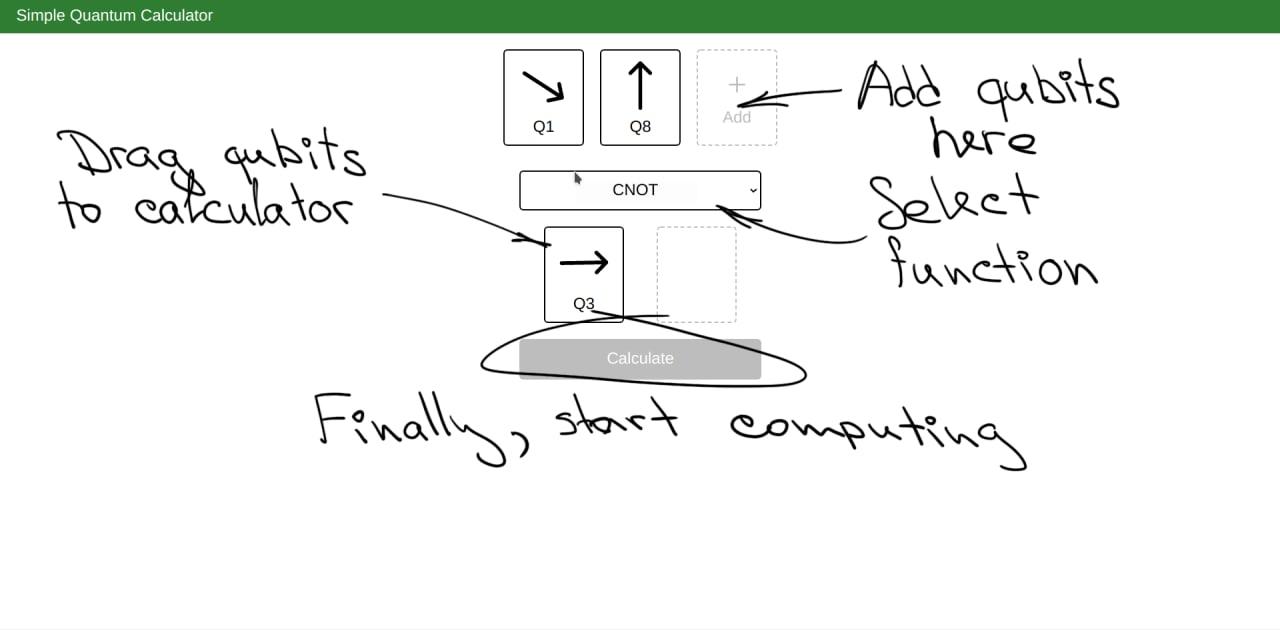 Simple Quantum Calculator
Q1
Q8
+
Add
Add qubits
here
Drag qubits
to calculator
CNOT
Select
function
Q3
Calculate
Finally, start computing